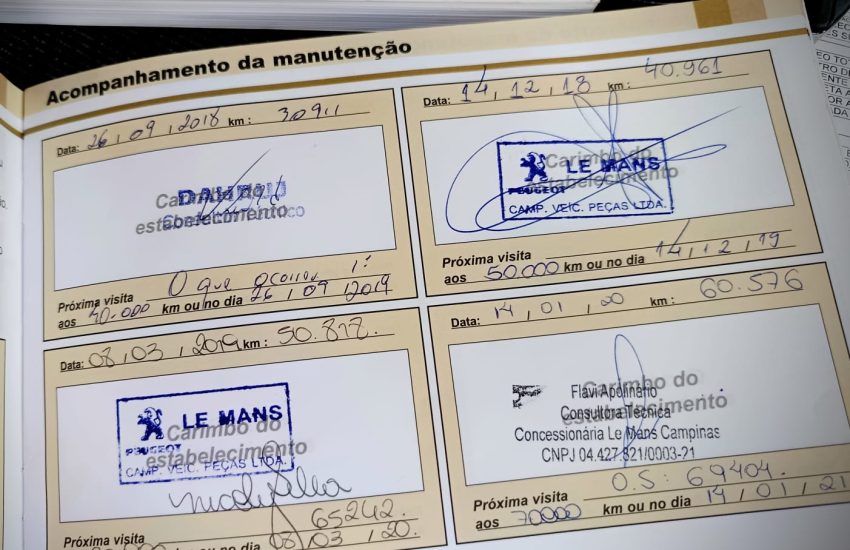 Acompanhamento da manutenção
Data: 26 / 09 / 2018 km: 30911
Carimbo do
estabelecimento
O que ocorrer 1º
Próxima visita
aos 40.000 km ou no dia 26 / 09 / 2019
Data: 14 / 12 / 18 km: 40.961
Carimbo do
estabelecimento
LE MANS
PEUGEOT
CAMP. VEIC. PEÇAS LTDA.
Próxima visita
aos 50.000 km ou no dia 14 / 12 / 19
Data: 08 / 03 / 2019 km: 50.818.
LE MANS
Carimbo do
PEUGEOT
estabelecimento
CAMP. VEIC. PEÇAS LTDA.
65242.
Próxima visita
km ou no dia 08 / 03 / 20.
Data: 14 / 01 / 20 km: 60.576
Carimbo do
estabelecimento
Flavi Apolinário
Consultora Técnica
Concessionária Le Mans Campinas
CNPJ 04.427.821/0003-21
O.S: 69404.
Próxima visita
aos 70000 km ou no dia 14 / 01 / 21